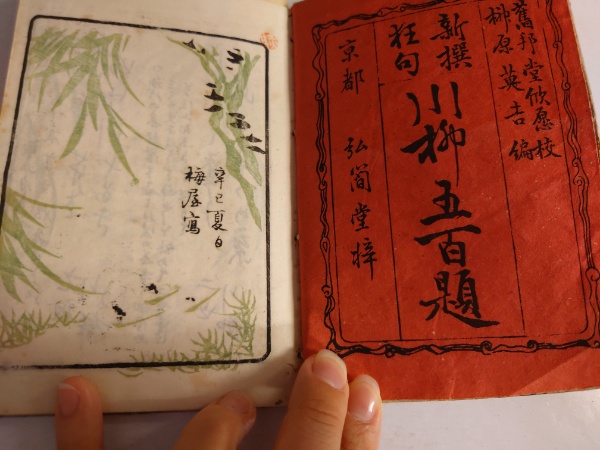 舊邦堂似愿校
柳原英吉編
新撰
狂句
川柳五百題
京都 弘簡堂梓
辛巳夏日
梅屋寫